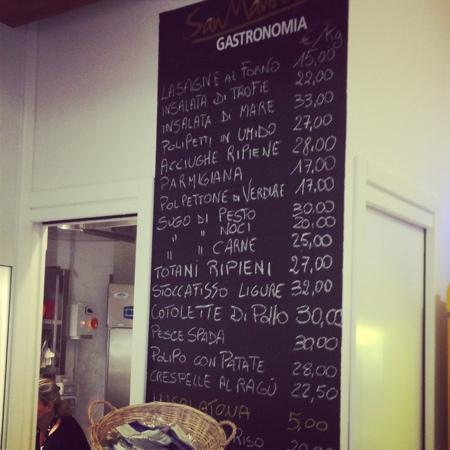 San
GASTRONOMIA
€/Kg
LASAGNE AL FORNO 15,00
INSALATA DI TROFIE 22,00
INSALATA DI MARE 33,00
POLIPETTI IN UMIDO 27,00
ACCIUGHE RIPIENE 28,00
PARMIGIANA 17,00
POLPETTONE DI VERDURE 17,00
SUGO DI PESTO 30,00
" " NOCI 20,00
" " CARNE 25,00
TOTANI RIPIENI 27,00
STOCCAFISSO LIGURE 32,00
COTOLETTE DI POLLO 30,00
PESCE SPADA 30,00
POLIPO CON PATATE 28,00
CRESPELLE AL RAGÙ 22,50
INSALATONA 5,00
RISO